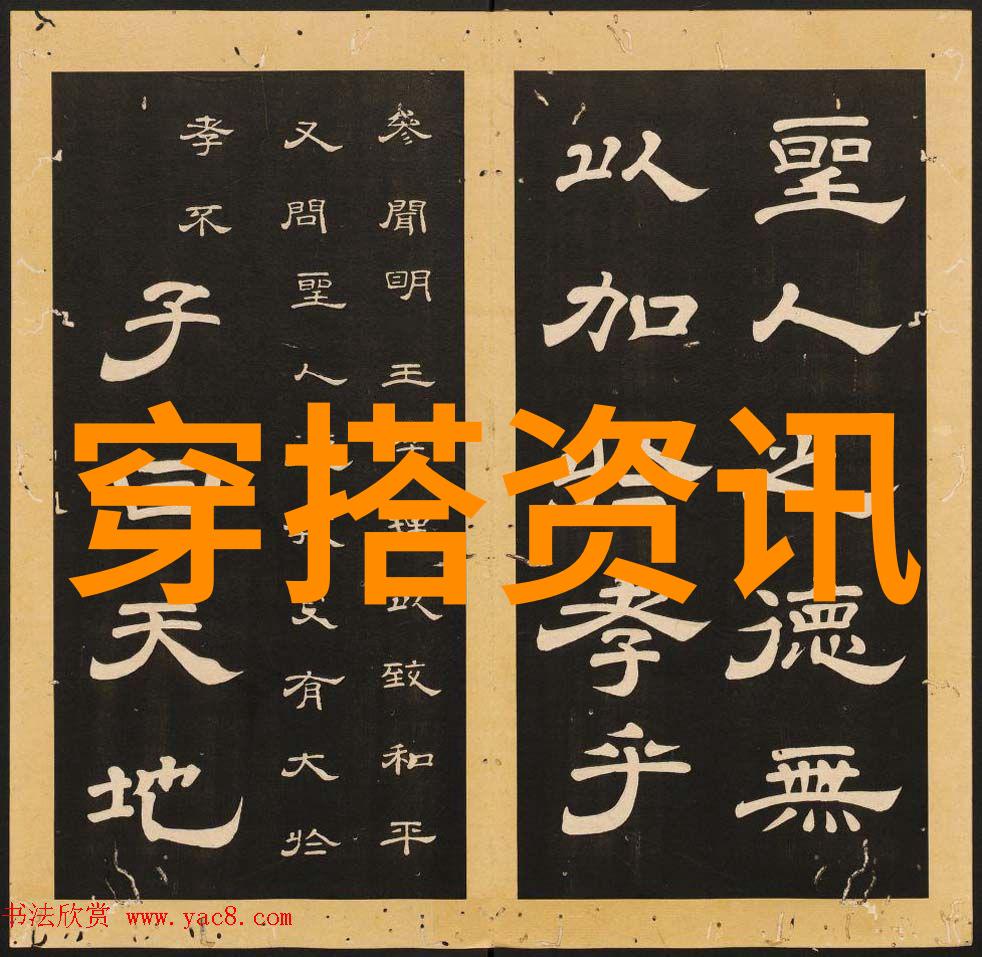 聖人德無
以加於孝乎
參聞明王理以致和平
又問聖人有大於
孝不
子曰天地
穿搭资讯
书法欣赏 www.yac8.com